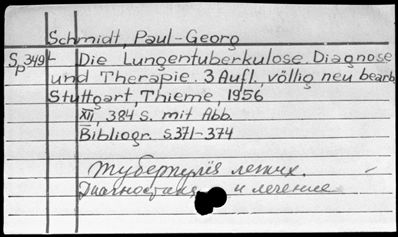 Schmidt, Paul-Georg
Sp 3494 Die Lungentuberkulose. Diagnose
und Therapie. 3 Aufl., völlig neu bearb.
Stuttgart, Thieme, 1956
XII, 384 S. mit Abb.
Bibliogr. S.371-374
Туберкулёз легких.
Диагностика и лечение